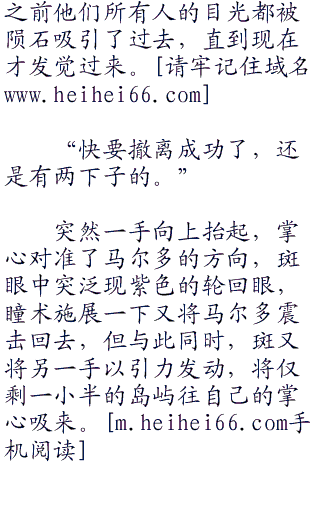 之前他们所有人的目光都被
陨石吸引了过去，直到现在
才发觉过来。[请牢记住域名
www.heihei66.com]
“快要撤离成功了，还
是有两下子的。”
突然一手向上抬起，掌
心对准了马尔多的方向，斑
眼中突泛现紫色的轮回眼，
瞳术施展一下又将马尔多震
击回去，但与此同时，斑又
将另一手以引力发动，将仅
剩一小半的岛屿往自己的掌
心吸来。[m.heihei66.com手
机阅读]